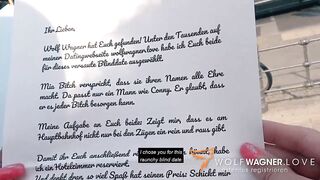 Ihr Lieben,
Wolf Wagner hat Euch gefunden! Unter den Tausenden auf
meiner Datingwebseite wolfwagner.love habe ich Euch beide
für dieses versaute Blinddate ausgewählt.
Mia Bitch verspricht, dass sie ihren Namen alle Ehre
macht. Da passt nur ein Mann wie Conny. Er glaubt, dass
er es jeder Bitch besorgen kann.
Meine Aufgabe an Euch beide: Zeigt mir, dass es am
Hauptbahnhof nicht nur bei den Zügen ein rein und raus gibt.
Damit ihr Euch anschließend
habe
ich ein Hoteltzimmer reserviert.
Und
so viel Spaß hat seinen Preis: Schickt mir
I chose you for this
raunchy blind date.
WOLFWAGNER.LOVE
kostenlos registrieren